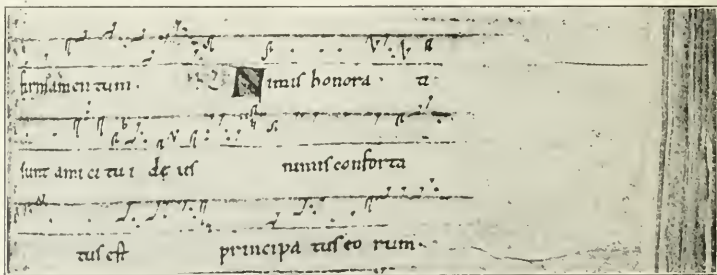 firmamentum. Nimis honora. ti
sunt amici tui deus nimis conforta
tus est principa tus eo rum.